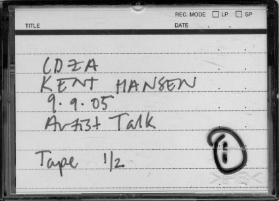 REC. MODE □ LP □ SP
TITLE DATE
CDZA
KENT HANSEN
9.9.05
Artist Talk
Tape 1/2
1